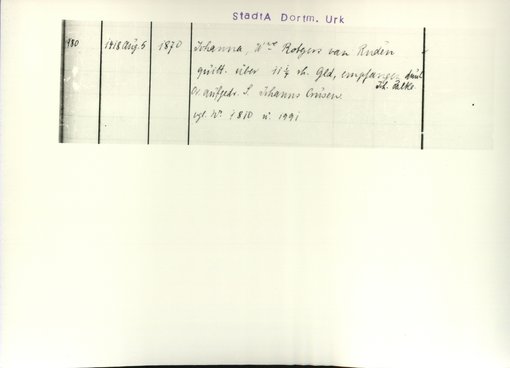 StadtA Dortm. Urk
980 1418 Aug. 5 1870 Johanna, Wwe Rotgers van Ruden
quitt. über 11½ rh. Gld, empfangen durch
Joh. Palke.
Or. aufgedr. S. Johanns Crusen.
vgl. Nr. 1810 u. 1991